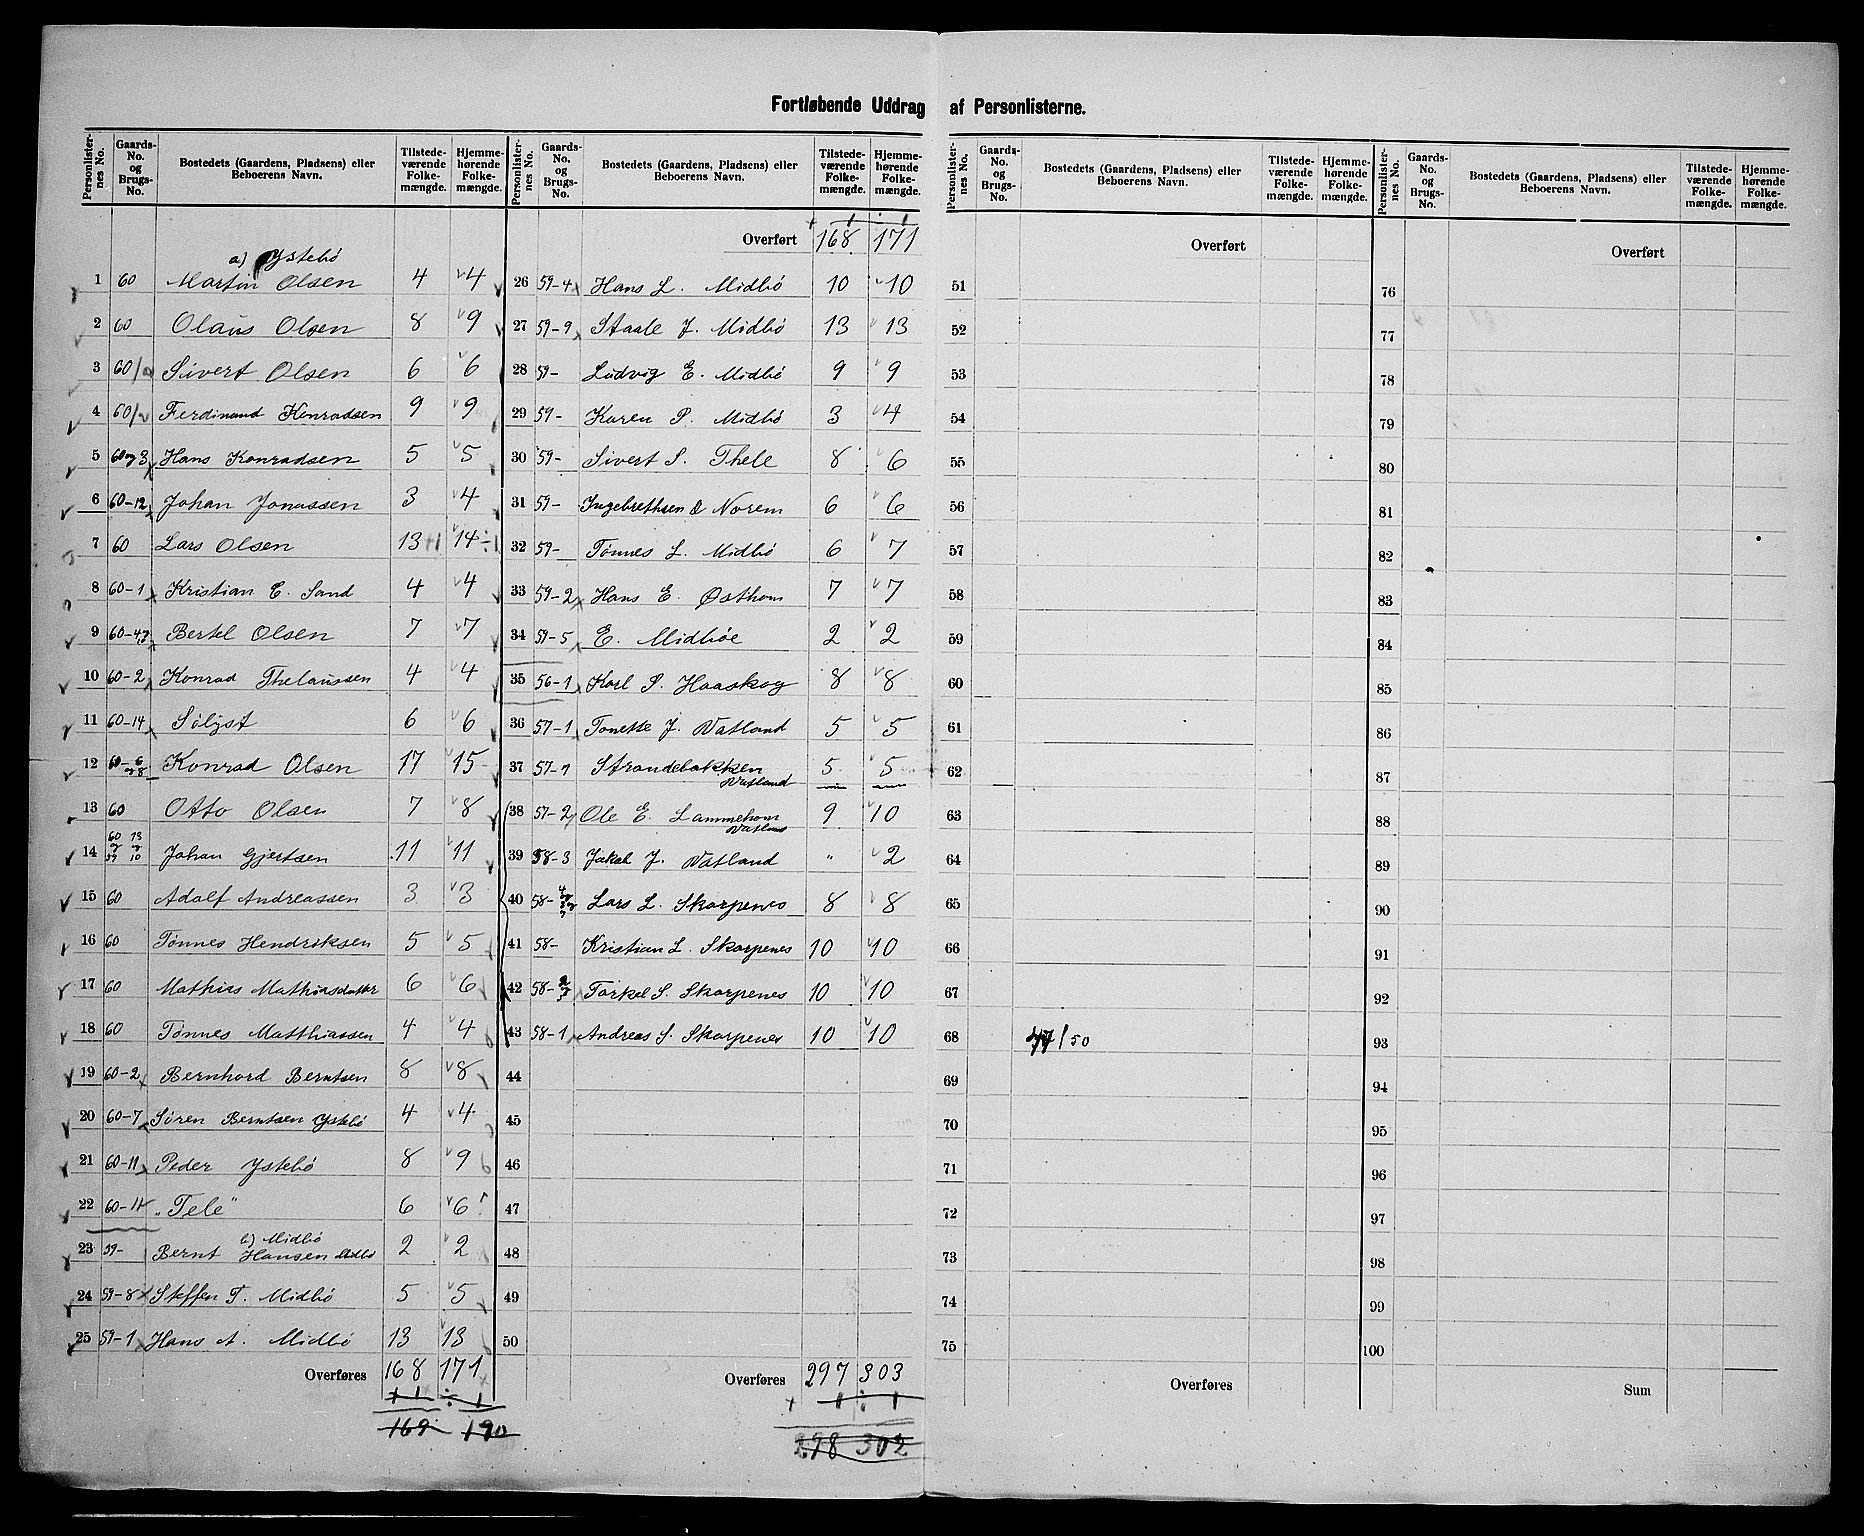 Fortløbende Uddrag af Personlisterne.
Personlister-nes No. Gaards-No. og Brugs-No. Bostedets (Gaardens, Pladsens) eller Beboerens Navn. Tilstede-værende Folke-mængde. Hjemme-hørende Folke-mængde.
a) Ystebö
1 60 Martin Olsen 4 4
2 60 Olaus Olsen 8 9
3 60/2 Sivert Olsen 6 6
4 60/2 Ferdinand Konradsen 9 9
5 60 og 3 Hans Konradsen 5 5
6 60-12 Johan Jonassen 3 4
7 60 Lars Olsen 13 +1 14 ÷1
8 60-1 Kristian E. Sand 4 4
9 60-4 Bertel Olsen 7 7
10 60-2 Konrad Thelaussen 4 4
11 60-14 Sölyst 6 6
12 60-6 og 8 Konrad Olsen 17 15
13 60 Otto Olsen 7 8
14 60 og 59 13 og 10 Johan Gjertsen 11 11
15 60 Adolf Andreassen 3 3
16 60 Tönnes Hendriksen 5 5
17 60 Mathias Mathiasdatter 6 6
18 60 Tönnes Matthiassen 4 4
19 60-2 Bernhard Berntsen 8 8
20 60-7 Sören Berntsen Ystebö 4 4
21 60-11 Peder Ystebö 8 9
22 60-11 "Tele" 6 6
b) Midbö
23 59- Bernt Hansen Midbö 2 2
24 59-8 Steffen T. Midbö 5 5
25 59-1 Hans A. Midbö 13 13
Overføres 168 171
+1 ÷1
169 170
Personlister-nes No. Gaards-No. og Brugs-No. Bostedets (Gaardens, Pladsens) eller Beboerens Navn. Tilstede-værende Folke-mængde. Hjemme-hørende Folke-mængde.
+1 ÷1
Overført 168 171
26 59-4 Hans L. Midbö 10 10
27 59-9 Staale J. Midbö 13 13
28 59- Ludvig E. Midbö 9 9
29 59- Karen P. Midbö 3 4
30 59- Sivert S. Thele 8 6
31 59- Ingebrethsen & Norem 6 6
32 59- Tönnes L. Midbö 6 7
33 59-2 Hans E. Östhom 7 7
34 59-5 E. Midböe 2 2
35 56-1 Karl P. Haaskog 8 8
36 57-1 Tonette J. Vatland 5 5
37 57-1 Strandebakken Vatland 5 5
38 57-2 Ole E. Lammehom 9 10
39 58-3 Jakob J. Vatland " 2
40 58- Lars L. Skarpenes 8 8
41 58- Kristian L. Skarpenes 10 10
42 58- Torkel S. Skarpenes 10 10
43 58-1 Andreas S. Skarpenes 10 10
44
45
46
47
48
49
50
Overføres 297 303
+1 ÷1
298 302
Personlister-nes No. Gaards-No. og Brugs-No. Bostedets (Gaardens, Pladsens) eller Beboerens Navn. Tilstede-værende Folke-mængde. Hjemme-hørende Folke-mængde.
Overført
51
52
53
54
55
56
57
58
59
60
61
62
63
64
65
66
67
68 /50
69
70
71
72
73
74
75
Overføres
Personlister-nes No. Gaards-No. og Brugs-No. Bostedets (Gaardens, Pladsens) eller Beboerens Navn. Tilstede-værende Folke-mængde. Hjemme-hørende Folke-mængde.
Overført
76
77
78
79
80
81
82
83
84
85
86
87
88
89
90
91
92
93
94
95
96
97
98
99
100
Sum